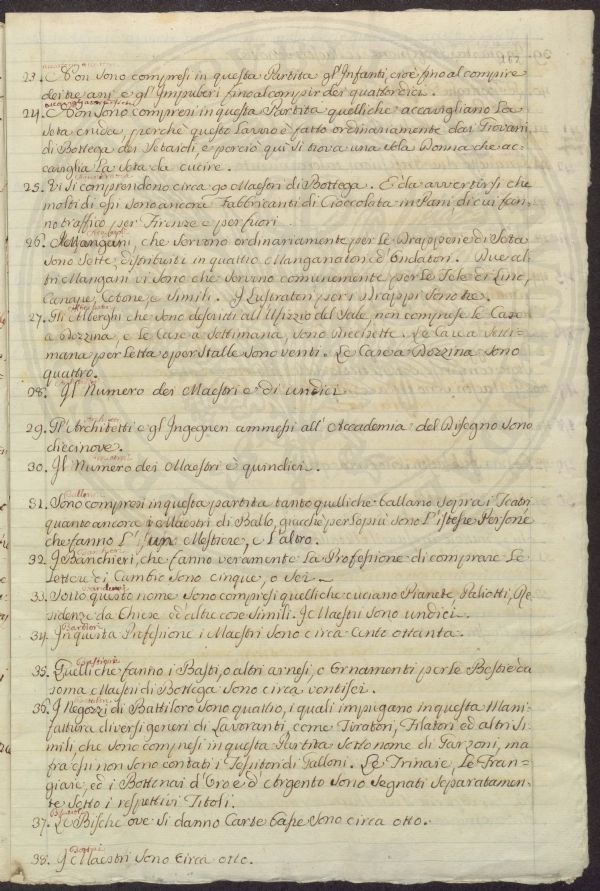 23. Non sono compresi in questa Partita gl'Infanti, cioè fino al compire
dei tre ani e gl'Impuberi fino al compir dei quattordici.
24. Non sono compresi in questa Partita quelli che accavigliano La
Seta cruda, perchè questo Lavoro è fatto ordinariamente dai Giovani
di Bottega dei Setaioli, e perciò qui si trova una sola Donna che ac-
caviglia La seta da cucire.
25. Vi si comprendono circa 90 Maestri di Bottega. E da avvertirsi che
molti di essi sono ancora Fabbricanti di Cioccolata in Pani, di cui fan-
no traffico per Firenze e per fuori.
26. I Mangani, che servono ordinariamente per le Drapperie di Seta
sono Sette, distribuiti in quattro Manganatori ed Ondatori. Due al-
tri Mangani vi sono che servono comunemente per le Tele di Lino,
Canape, Cotone, e Simili. I Lustratori per i Drappi sono tre.
27. Gli Alberghi che sono descritti all'Ufizzio del Sale, non comprese le Case
a Dozzina, e le Case a Settimana, sono diecisette. Le Case a Setti-
mana per Letta o per Stalle sono venti. Le Case a Dozzina sono
quattro.
28. Il Numero dei Maestri è di undici.
Architetti
29. Gl'Architetti e gl'Ingegneri ammessi all'Accademia del Disegno sono
diecinove.
30. Il Numero dei Maestri è quindici.
Ballerini
31. Sono compresi in questa partita tanto quelli che ballano sopra i Teatri
quanto ancora i Maestri di Ballo, giacchè per lo più sono L'istesse Persone
che fanno L'un Mestiere, e L'altro.
Banchieri
32. I Banchieri, che fanno veramente La Professione di comprare Le
Lettere di Cambio sono cinque, o sei.
33. Sotto questo nome sono compresi quelli che cuciano Pianete, Paliotti, Re-
sidenze da Chiese ed altre cose simili. I Maestri sono undici.
Barbieri
34. In questa Professione i Maestri sono circa cento ottanta.
35. Quelli che fanno i Basti, o altri arnesi, o Ornamenti per le Bestie da
soma Maestri di Bottega sono circa ventisei.
36. I Negozzi di Battiloro sono quattro, i quali impiegano in questa Mani-
fattura diversi generi di Lavoranti, come Tiratori, Filatori ed altri si-
mili, che sono compresi in questa Partita sotto nome di Garzoni, ma
fra essi non sono contati i Tessitori di Galloni. Le Trinaie, Le Fran-
giaie, ed i Bottonai d'Oro e d'Argento sono segnati separatamen-
te sotto i respettivi Titoli.
37. Le Bische ove si danno Carte basse sono circa otto.
38. I Maestri sono circa otto.